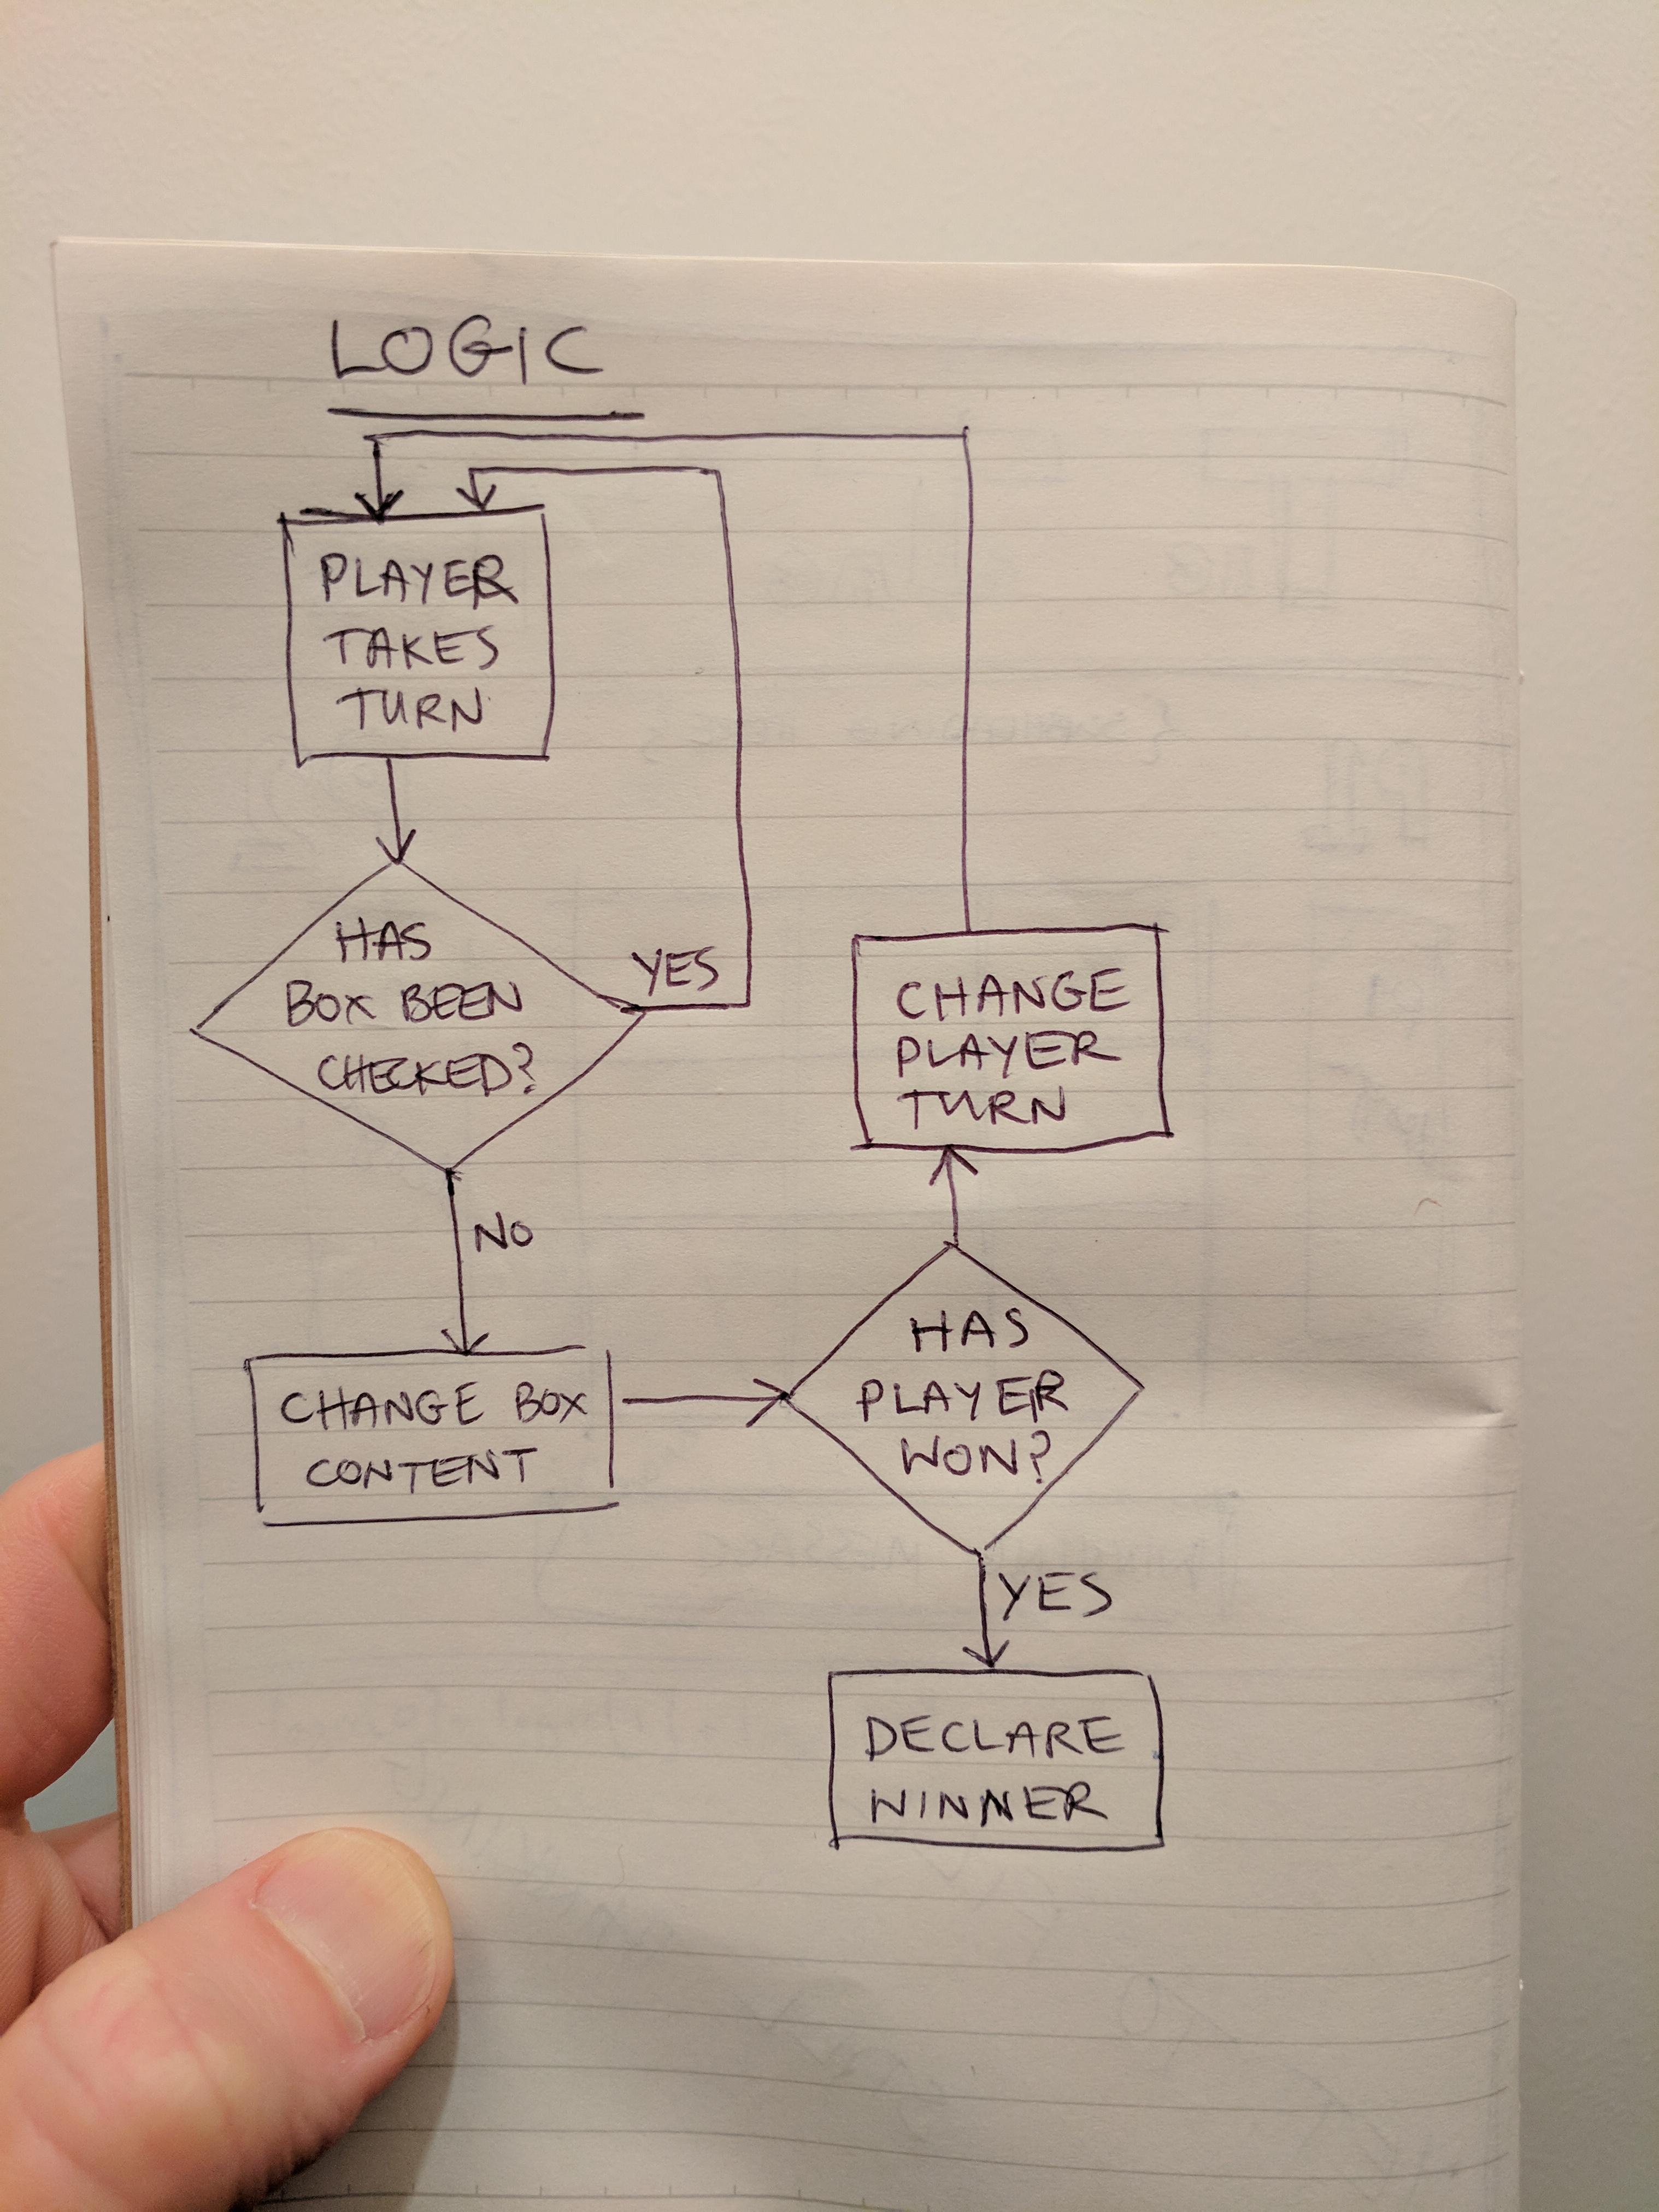 LOGIC
PLAYER
TAKES
TURN
HAS
BOX BEEN
CHECKED?
YES
NO
CHANGE BOX
CONTENT
CHANGE
PLAYER
TURN
HAS
PLAYER
WON?
YES
DECLARE
WINNER